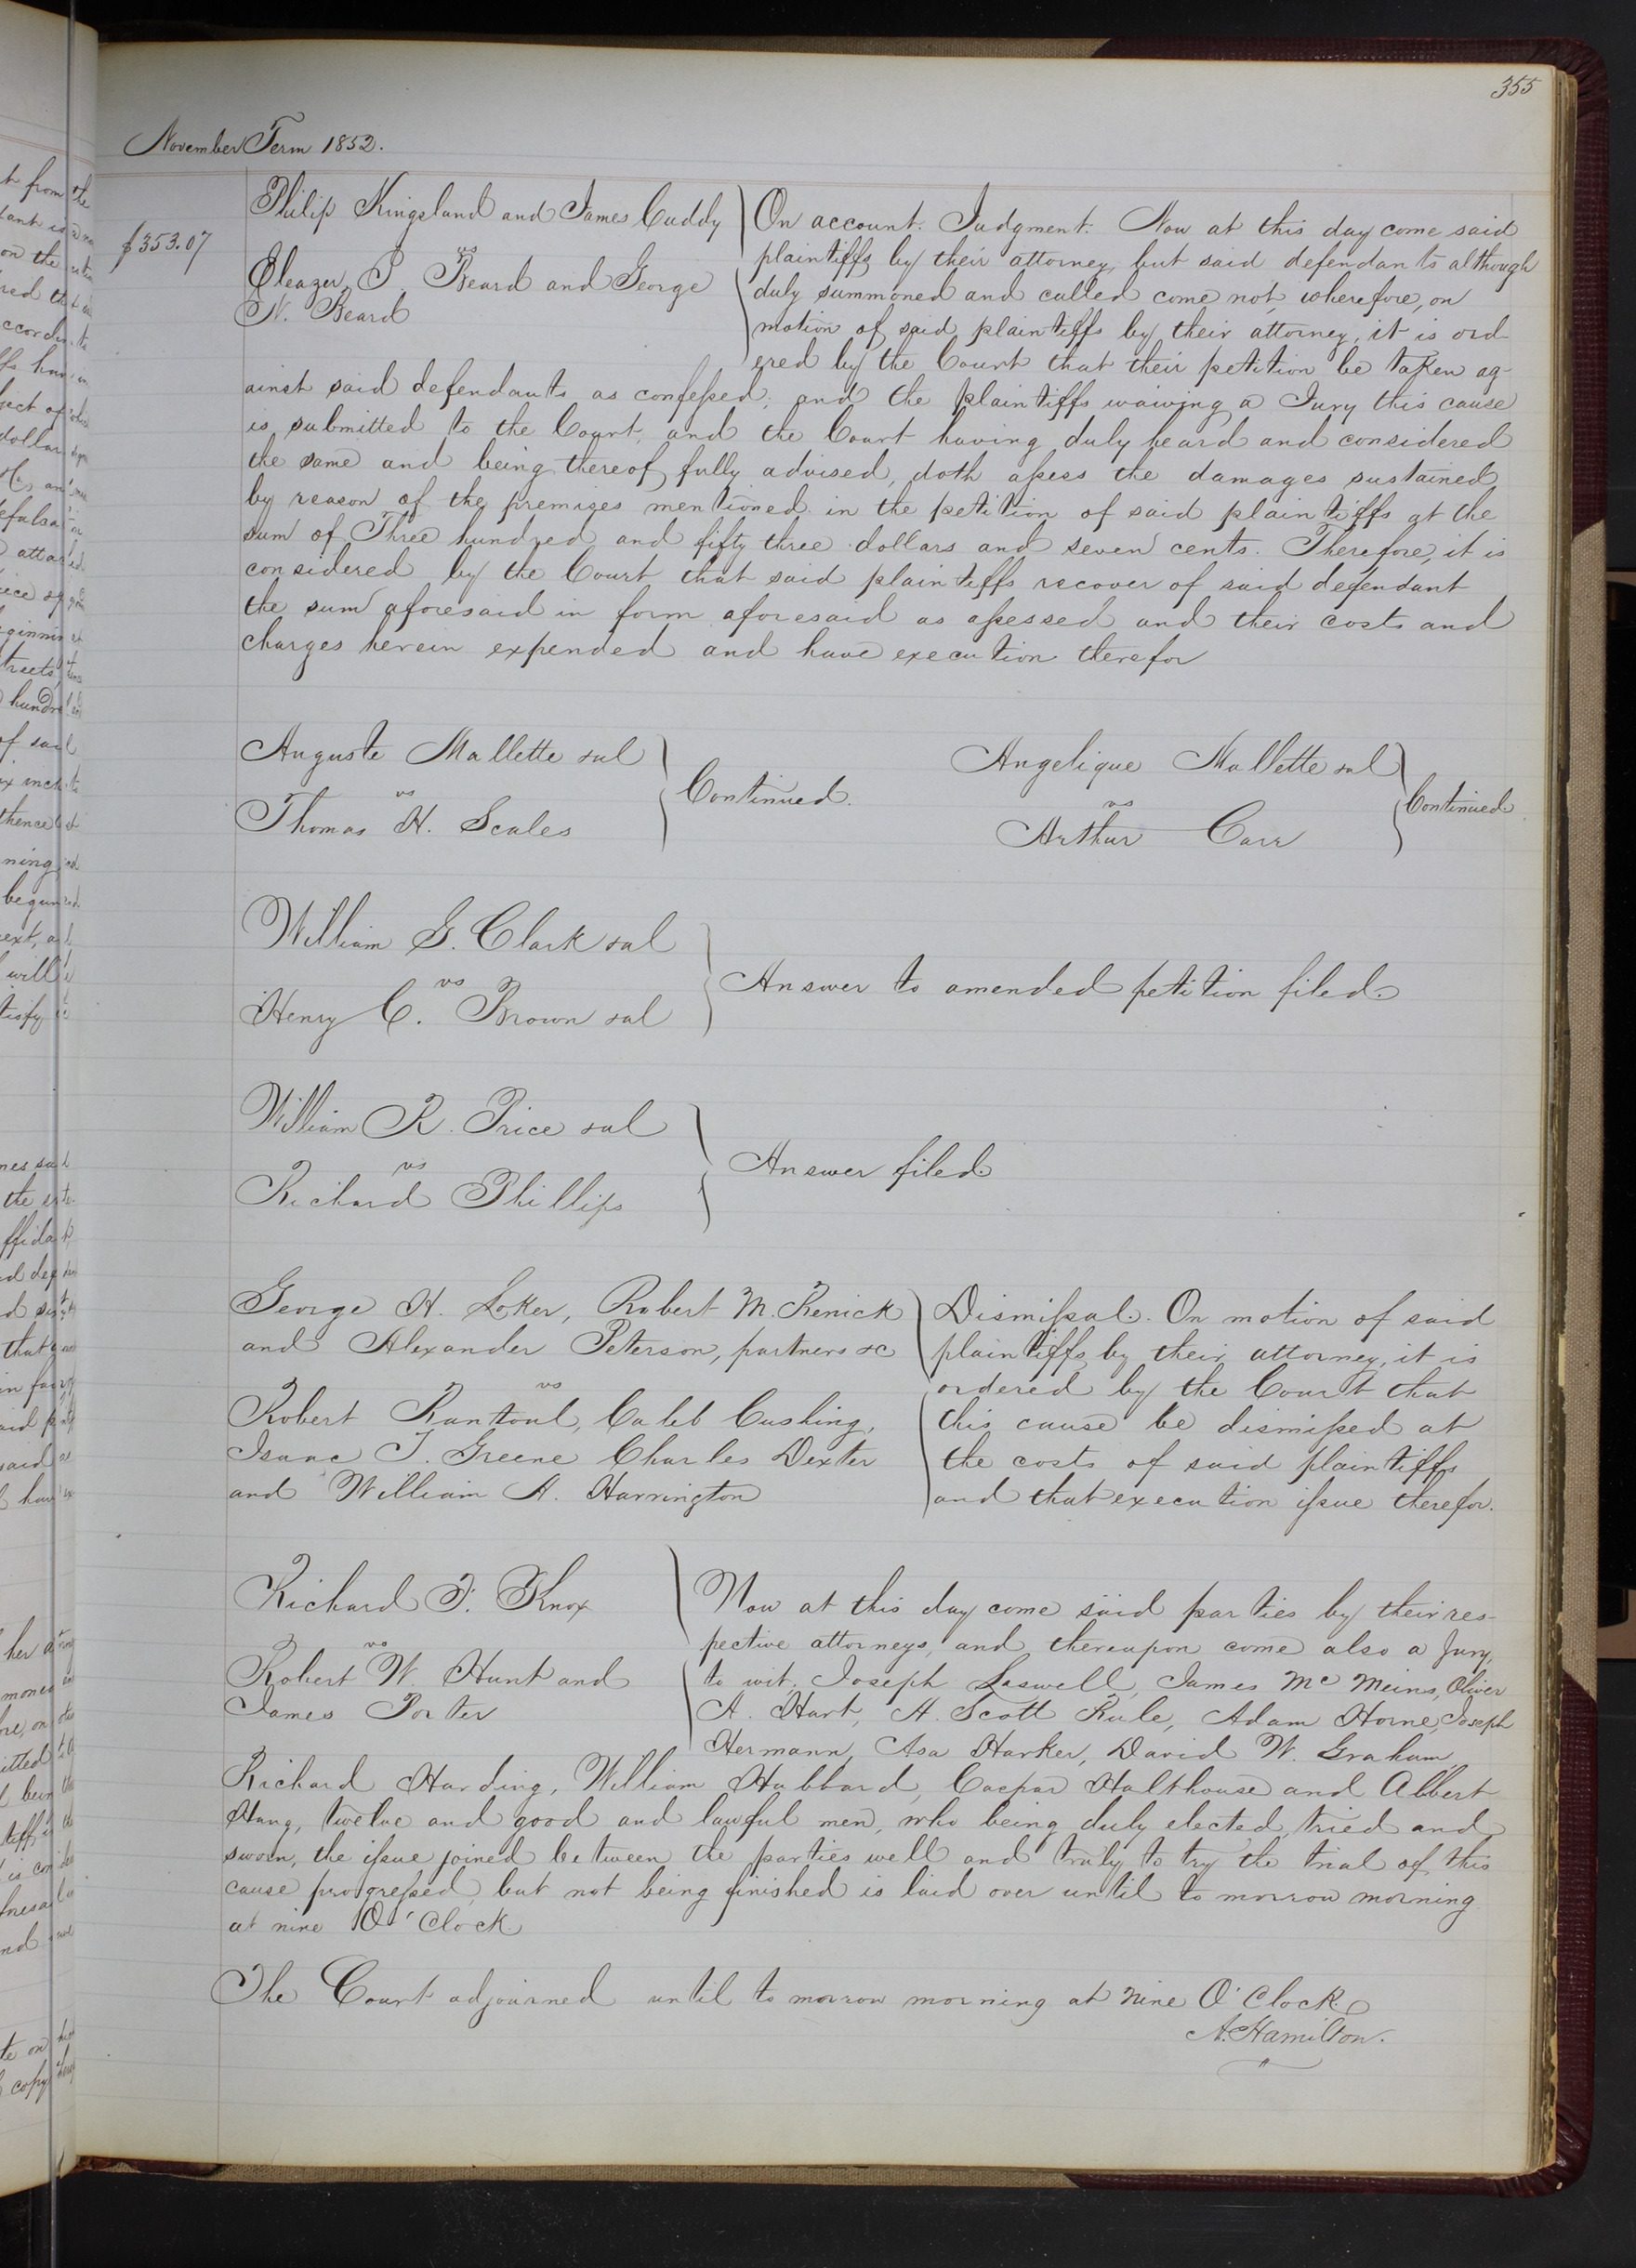 355
November Term 1852.
$353.07
Philip Kingsland and James Cuddy
vs
Eleazer P. Beard and George
N. Beard
On account. Judgment. Now at this day come said
plaintiffs by their attorney, but said defendants although
duly summoned and called come not, wherefore, on
motion of said plaintiffs by their attorney, it is ord-
ered by the Court that their petition be taken ag-
ainst said defendants as confessed; and the plaintiffs waiving a Jury this cause
is submitted to the Court, and the Court having duly heard and considered
the same and being thereof fully advised, doth assess the damages sustained
by reason of the premises mentioned in the petition of said plaintiffs at the
sum of Three hundred and fifty three dollars and seven cents. Therefore, it is
considered by the Court that said plaintiffs recover of said defendant
the sum aforesaid in form aforesaid as assessed and their costs and
charges herein expended and have execution therefor
Auguste Mallette &al
vs
Thomas H. Scales
Continued.
Angelique Mallette &al
vs
Arthur Carr
Continued
William G. Clark &al
vs
Henry C. Brown &al
Answer to amended petition filed.
William R. Price &al
vs
Richard Phillips
Answer filed.
George H. Loker, Robert M. Renick
and Alexander Peterson, partners &c
vs
Robert Rantoul, Caleb Cushing,
Isaac T. Greene Charles Dexter
and William A. Harrington
Dismissal. On motion of said
plaintiffs by their attorney, it is
ordered by the Court that
this cause be dismissed at
the costs of said plaintiffs
and that execution issue therefor.
Richard F. Knox
vs
Robert W. Hunt and
James Porter
Now at this day come said parties by their res-
pective attorneys, and thereupon come also a Jury,
to wit, Joseph Laswell, James Mc Meins, Oliver
A. Hart, A. Scott Rule, Adam Horne, Joseph
Hermann, Asa Harker, David W. Graham,
Richard Harding, William Hubbard, Caspar Halthouse and Albert
Hang, twelve and good and lawful men, who being duly elected, tried and
sworn, the issue joined between the parties well and truly to try the trial of this
cause progressed, but not being finished is laid over until to morrow morning
at nine O'Clock.
The Court adjourned until to morrow morning at nine O'Clock.
A. Hamilton.